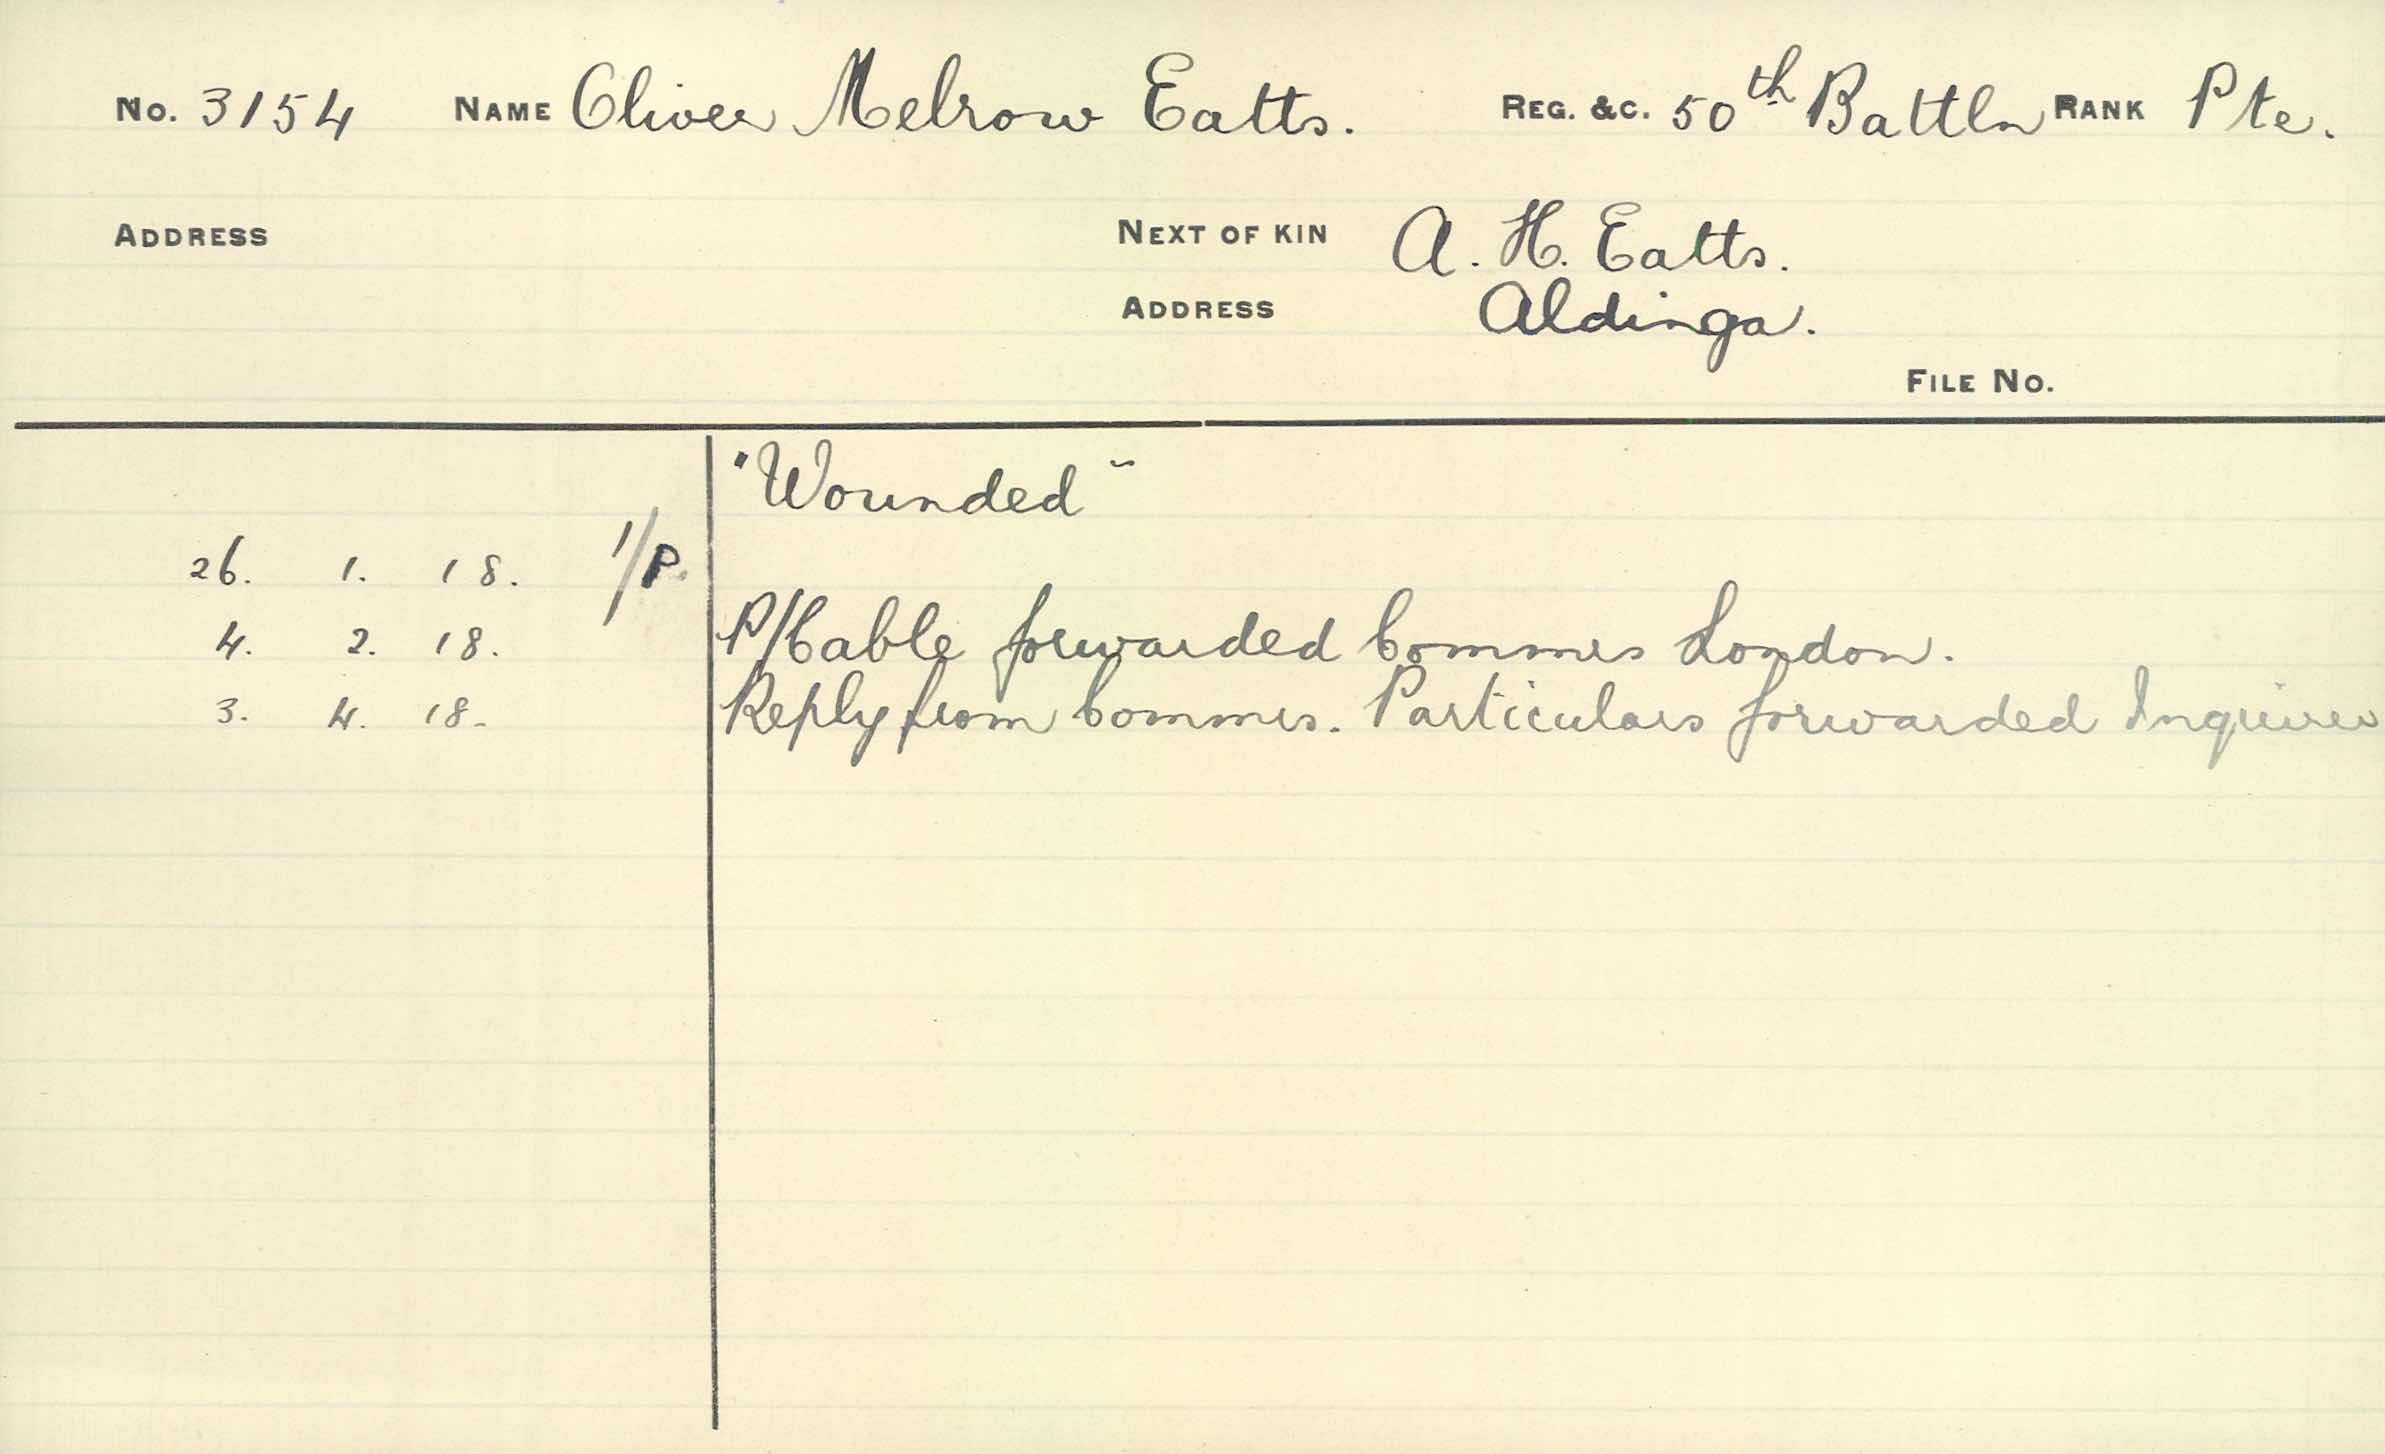 No. 3154 NAME Oliver Melrow Eatts. REG. &C. 50th Battln RANK Pte.
ADDRESS NEXT OF KIN A. H. Eatts.
ADDRESS Aldinga.
FILE No.
"Wounded"
26. 1. 18. 1/P.
4. 2. 18. P/Cable forwarded Commrs London.
3. 4. 18. Reply from Commrs. Particulars forwarded Inquirer